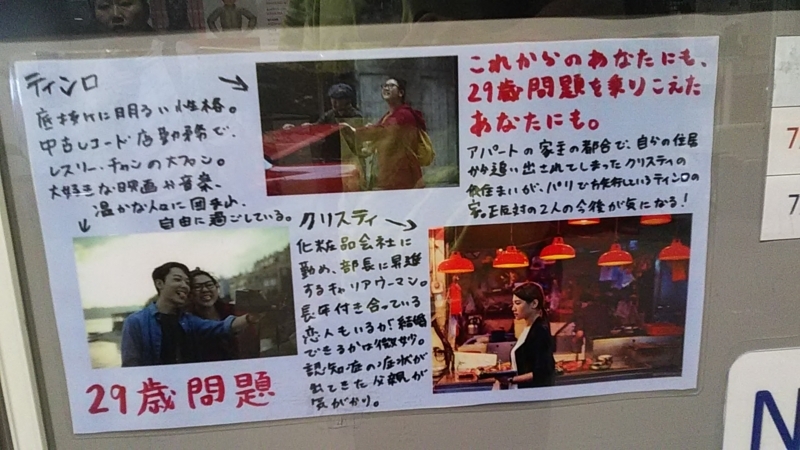 ティンロ
底抜けに明るい性格。
中古レコード店勤務で、
レスリー・チャンの大ファン。
大好きな映画や音楽、
温かな人々に囲まれ、
自由に過ごしている。
これからのあなたにも、
29歳問題を乗りこえた
あなたにも。
アパートの家主の都合で、自分の住居
から追い出されてしまったクリスティの
仮住まいが、パリに旅行しているティンロの
家。正反対の2人の今後が気になる!
クリスティ
化粧品会社に
勤め、部長に昇進
するキャリアウーマン。
長年付き合っている
恋人もいるが結婚
できるかは微妙。
認知症の症状が
出てきた父親が
気がかり。
29歳問題
7
7
N